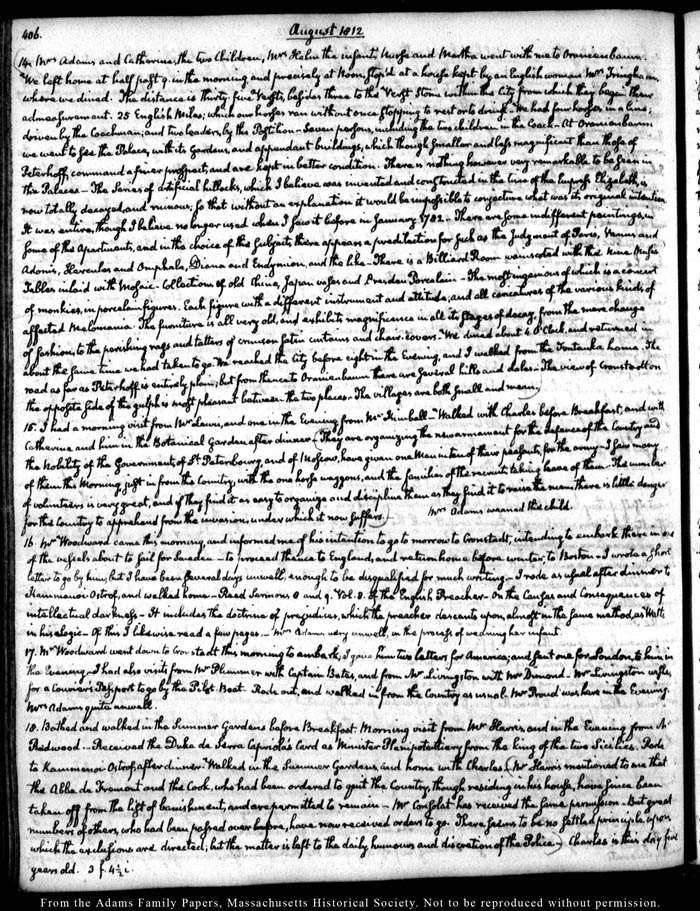 406.
August 1812
14. Mrs Adams and Catherine, the two Children, Mrs Helm the infant's Nurse and Martha went with me to Oranienbaum.
We left home at half past 9. in the morning and precisely at Noon, stop'd at a house kept by an English woman Mrs Tringham,
where we dined. The distance is thirty five Versts, besides three to the Verst Stone within the City from which they began their
admeasurement. 25 English Miles; which our horses ran without once stopping to rest or to drink. We had four horses, in a line;
driven by the Coachman; and two leaders, by the Postilion. Seven persons, including the two children in the Coach. At Oranienbaum
we went to see the Palace, with its Gardens, and appendant buildings, which though smaller and less magnificent than those of
Peterhoff, command a finer prospect; and are kept in better condition. There is nothing however very remarkable to be seen in
the Palaces — The Series of artificial hillocks, which I believe was invented and constructed in the time of the Empress Elizabeth, is
now totally decayed and ruinous; so that without an explanation it would be impossible to conjecture what was its original intention.
It was entire, though I believe no longer used when I saw it before in January 1782. There are some indifferent paintings, in
some of the Apartments, and in the choice of the Subjects, there appears a predilection for such as the Judgment of Paris, Venus and
Adonis, Hercules and Omphale, Diana and Endymion, and the like. There is a Billiard Room wainscoted with the Nine Muses
Tables inlaid with Mosaic. Collections of old China, Japan vases and Dresden Porcelain. The most ingenious of which is a concert
of monkies, in porcelain figures. Each figure with a different instrument and attitude; and all caricatures of the various kinds of
affected Melomania. The furniture is all very old, and exhibits magnificence in all its stages of decay, from the mere change
of fashion, to the perishing rags and tatters of crimson satin curtains and chair-covers. We dined about 4 O'Clock, and returned in
about the same time we had taken to go. We reached the City before eight in the Evening, and I walked from the Fontanka home. The
road as far as Peterhoff is entirely plain; but from thence to Oranienbaum there are several hills and dales. The view of Cronstadt on
the opposite side of the gulph is most pleasant between the two places. The villages are both small and mean.
15. I had a morning visit from Mr Lewis, and one in the Evening from Mr Kimball. Walked with Charles before Breakfast, and with
Catherine and him in the Botanical Garden after dinner. They are organizing the new armament for the defence of the Country and
the Nobility of the Governments of St. Petersbourg, and of Moscow, have given one Man in ten of their peasants, for the army. I saw many
of them this Morning, just in from the Country, with the one horse waggons, and the families of the recruits taking leave of them. The number
of volunteers is very great, and if they find it as easy to organize and discipline them as they find it to raise the men there is little danger
for this Country to apprehend from the invasion, under which it now suffers. Mrs Adams weaned the child.
16. Mr Woodward came this morning, and informed me of his intention to go to morrow to Cronstadt, intending to embark there in one
of the vessels about to sail for Sweden — to proceed thence to England, and return home before winter to Boston. I wrote a short
letter to go by him, but I have been several days unwell, enough to be disqualified for much writing. I rode as usual after dinner to
Kammenoi Ostrof, and walked home. Read Sermons 8 and 9. Vol. 8. of the English Preacher. On the Causes and Consequences of
intellectual darkness. It includes the doctrine of prejudices, which the preacher descants upon, almost in the same method, as Watts
in his Logic. Of this I likewise read a few pages. Mrs Adams very unwell, in the process of weaning her infant.
17. Mr Woodward went down to Cronstadt this morning to embark; I gave him two letters for America; and sent one for London, to him in
the Evening. I had also visits from Mr Plummer with Captain Bates, and from Mr Livingston with Mr Dimond. Mr Livingston wishes
for a Courier's Passport to go by the Pilot Boat. Rode out, and walked in from the Country as usual. Mr Proud was here in the Evening.
Mrs Adams quite unwell.
18. Bathed and walked in the Summer Gardens before Breakfast. Morning visit from Mr Harris, and in the Evening from Mr
Redwood. Received the Duke de Serra Capriola's Card as Minister Plenipotentiary from the king of the two Sicilies. Rode
to Kammenoi Ostrof, after dinner. Walked in the Summer Gardens and home with Charles. Mr Harris mentioned to me that
the Abbé de Fremont and the Cook, who had been ordered to quit the Country, though residing in his house, have since been
taken off from the list of banishment, and are permitted to remain. Mr Consolat has received the same permission. But great
numbers of others, who had been passed over before, have now received orders to go. There seems to be no settled principle upon
which the exclusions are directed; but the matter is left to the daily humours and discretion of the Police. Charles is this day five
years old. 3 f. 4½ i.
From the Adams Family Papers, Massachusetts Historical Society. Not to be reproduced without permission.